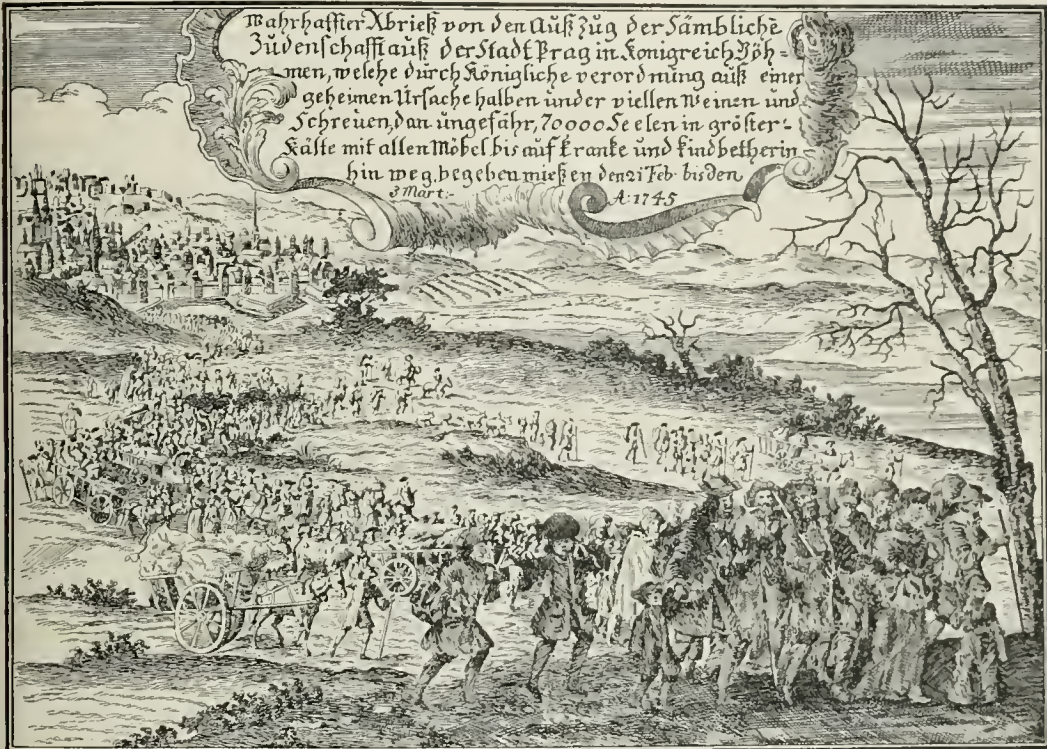 Wahrhaffter Abrieß von den Auß Zug der Sämbliche̅
Judenschafft auß der Stadt Prag in Königreich Böh-
men, welche durch Königliche verordnung auß einer
geheimen Ursache halben under viellen Weinen und
Schreüen, dan ungefähr, 70000 Seelen in gröster-
Kälte mit allen Möbel bis auf kranke und kindbetherin-
hin weg begeben mießen den 21 Feb. bis den
3 Mart:- A: 1745